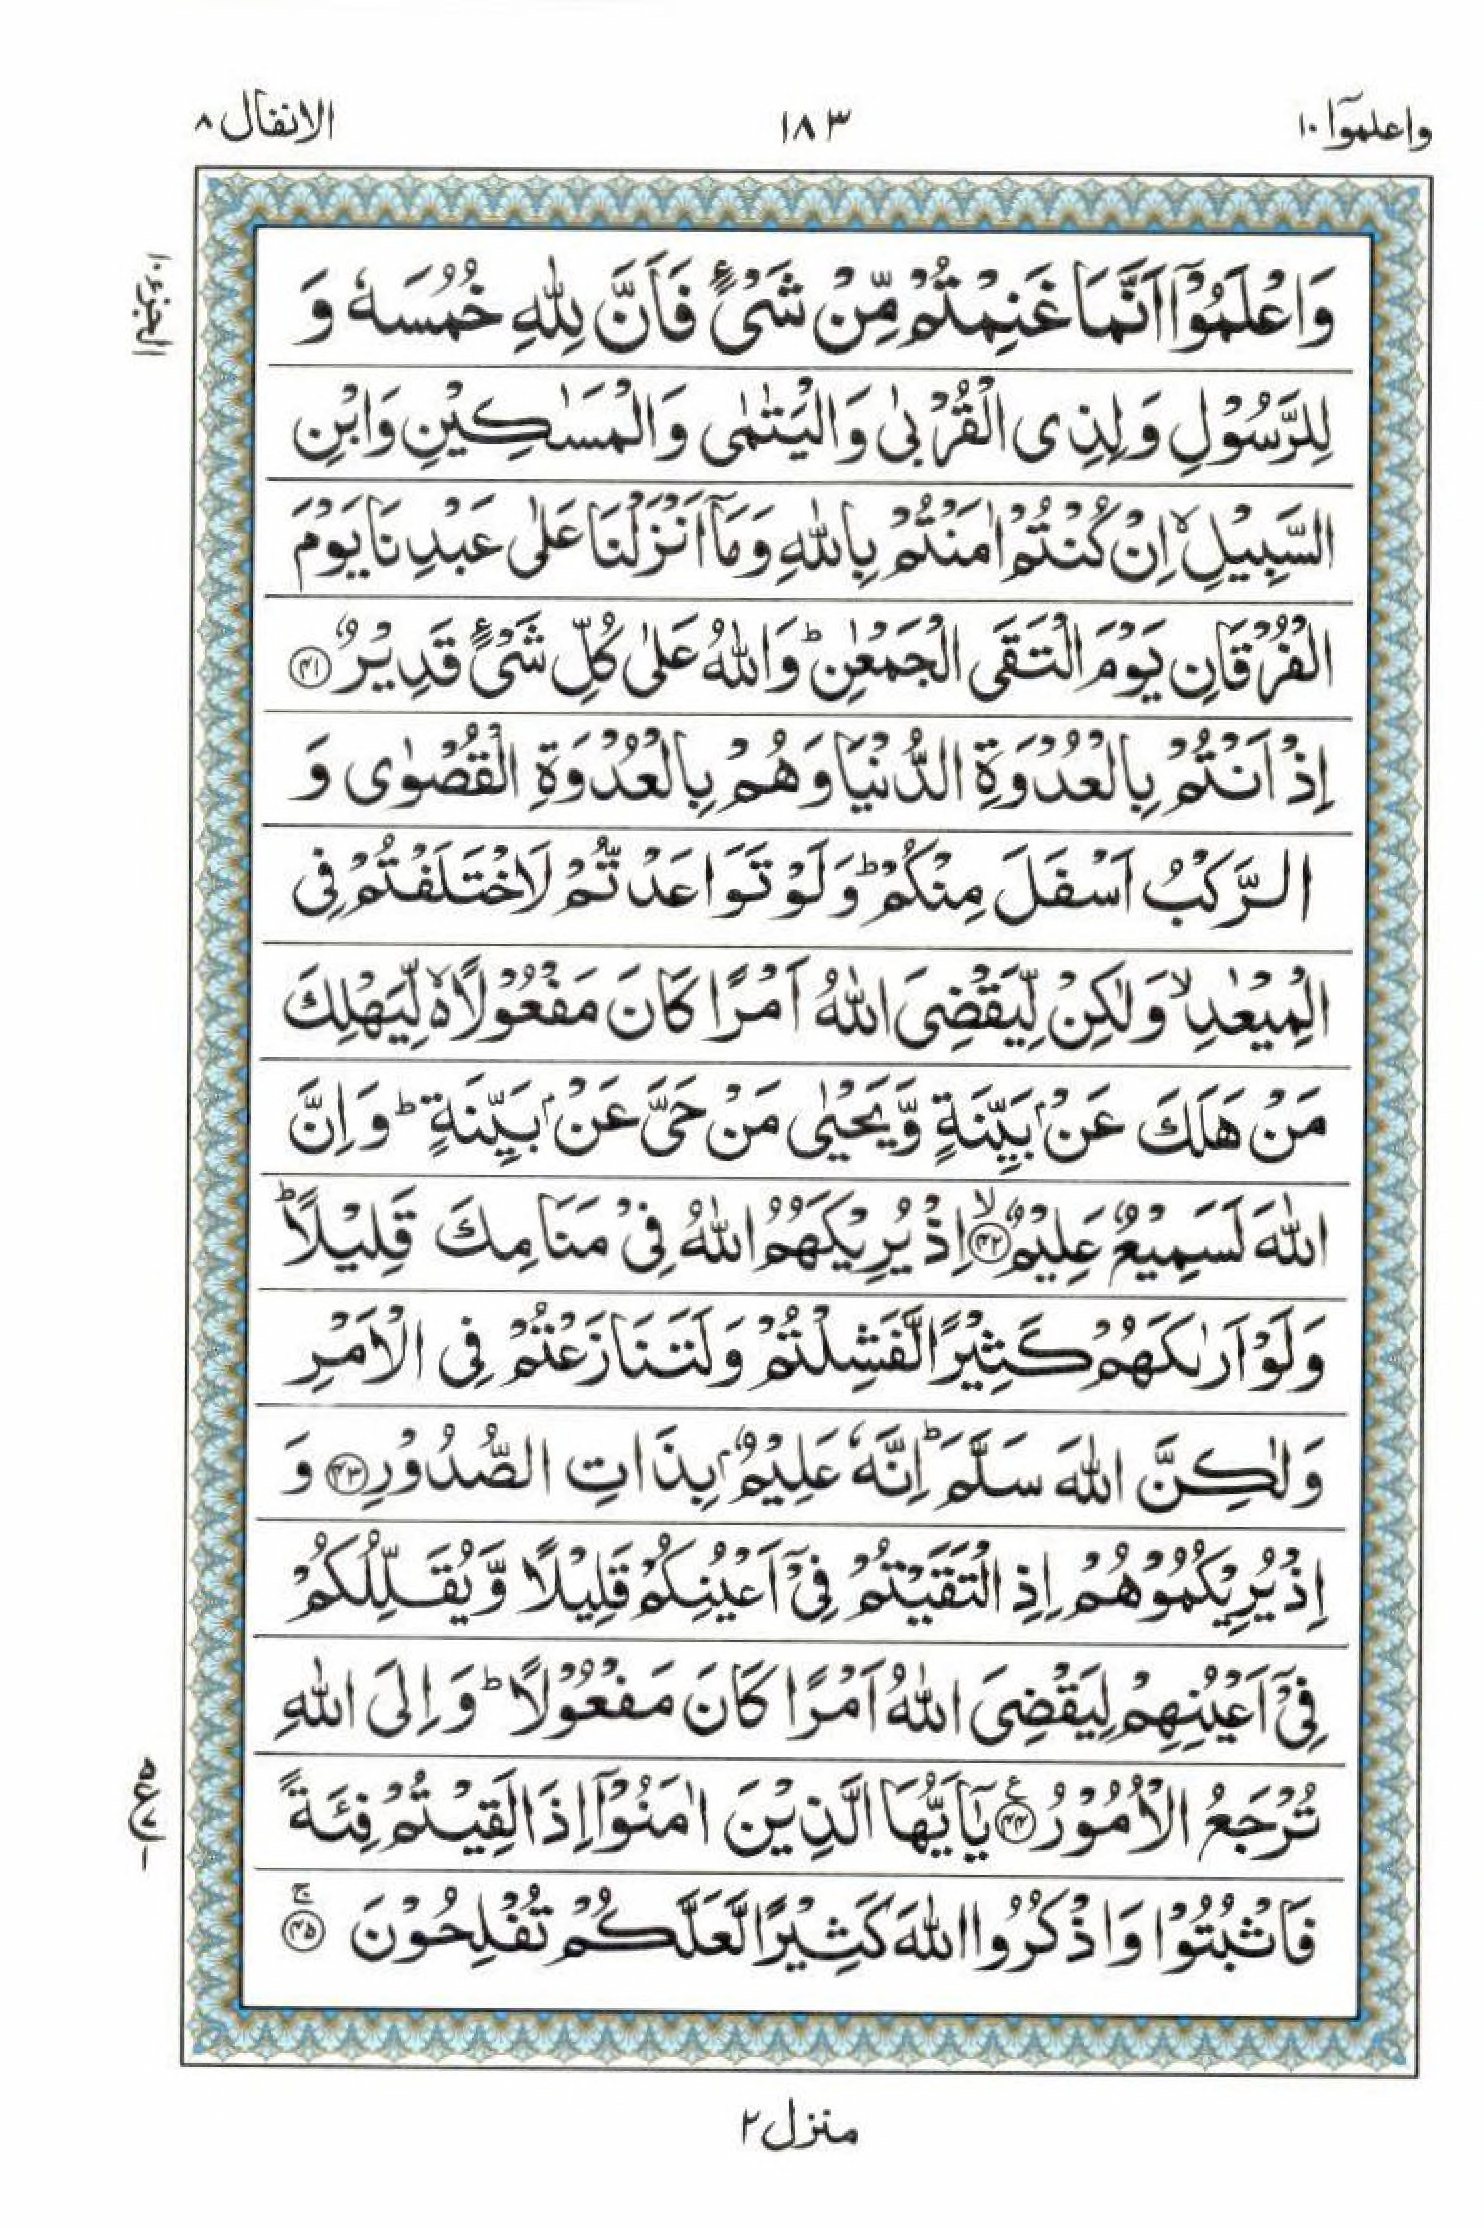 واعلموٓا ١٠
١٨٣
الانفال ٨
الجزء ١٠
وَاعْلَمُوْٓا اَنَّمَا غَنِمْتُمْ مِّنْ شَیْءٍ فَاَنَّ لِلّٰهِ خُمُسَهٗ وَ
لِلرَّسُوْلِ وَلِذِی الْقُرْبٰی وَالْیَتٰمٰی وَالْمَسٰكِیْنِ وَابْنِ
السَّبِیْلِ ۙ اِنْ كُنْتُمْ اٰمَنْتُمْ بِاللّٰهِ وَمَاۤ اَنْزَلْنَا عَلٰی عَبْدِنَا یَوْمَ
الْفُرْقَانِ یَوْمَ الْتَقَی الْجَمْعٰنِ ؕ وَاللّٰهُ عَلٰی كُلِّ شَیْءٍ قَدِیْرٌ ﴿۴۱﴾
اِذْ اَنْتُمْ بِالْعُدْوَةِ الدُّنْیَا وَهُمْ بِالْعُدْوَةِ الْقُصْوٰی وَ
الرَّكْبُ اَسْفَلَ مِنْكُمْ ؕ وَلَوْ تَوَاعَدْتُّمْ لَاخْتَلَفْتُمْ فِی
الْمِیْعٰدِ ۙ وَلٰكِنْ لِّیَقْضِیَ اللّٰهُ اَمْرًا كَانَ مَفْعُوْلًا ۙ۬ لِّیَهْلِكَ
مَنْ هَلَكَ عَنْۢ بَیِّنَةٍ وَّیَحْیٰی مَنْ حَیَّ عَنْۢ بَیِّنَةٍ ؕ وَاِنَّ
اللّٰهَ لَسَمِیْعٌ عَلِیْمٌ ﴿ۙ۴۲﴾ اِذْ یُرِیْكَهُمُ اللّٰهُ فِیْ مَنَامِكَ قَلِیْلًا ؕ
وَلَوْ اَرٰىكَهُمْ كَثِیْرًا لَّفَشِلْتُمْ وَلَتَنَازَعْتُمْ فِی الْاَمْرِ
وَلٰكِنَّ اللّٰهَ سَلَّمَ ؕ اِنَّهٗ عَلِیْمٌۢ بِذَاتِ الصُّدُوْرِ ﴿۴۳﴾ وَ
اِذْ یُرِیْكُمُوْهُمْ اِذِ الْتَقَیْتُمْ فِیْۤ اَعْیُنِكُمْ قَلِیْلًا وَّیُقَلِّلُكُمْ
فِیْۤ اَعْیُنِهِمْ لِیَقْضِیَ اللّٰهُ اَمْرًا كَانَ مَفْعُوْلًا ؕ وَاِلَی اللّٰهِ
تُرْجَعُ الْاُمُوْرُ ﴿۴۴﴾ ع یٰۤاَیُّهَا الَّذِیْنَ اٰمَنُوْۤا اِذَا لَقِیْتُمْ فِئَةً
فَاثْبُتُوْا وَاذْكُرُوا اللّٰهَ كَثِیْرًا لَّعَلَّكُمْ تُفْلِحُوْنَ ﴿ۚ۴۵﴾
منزل ۲